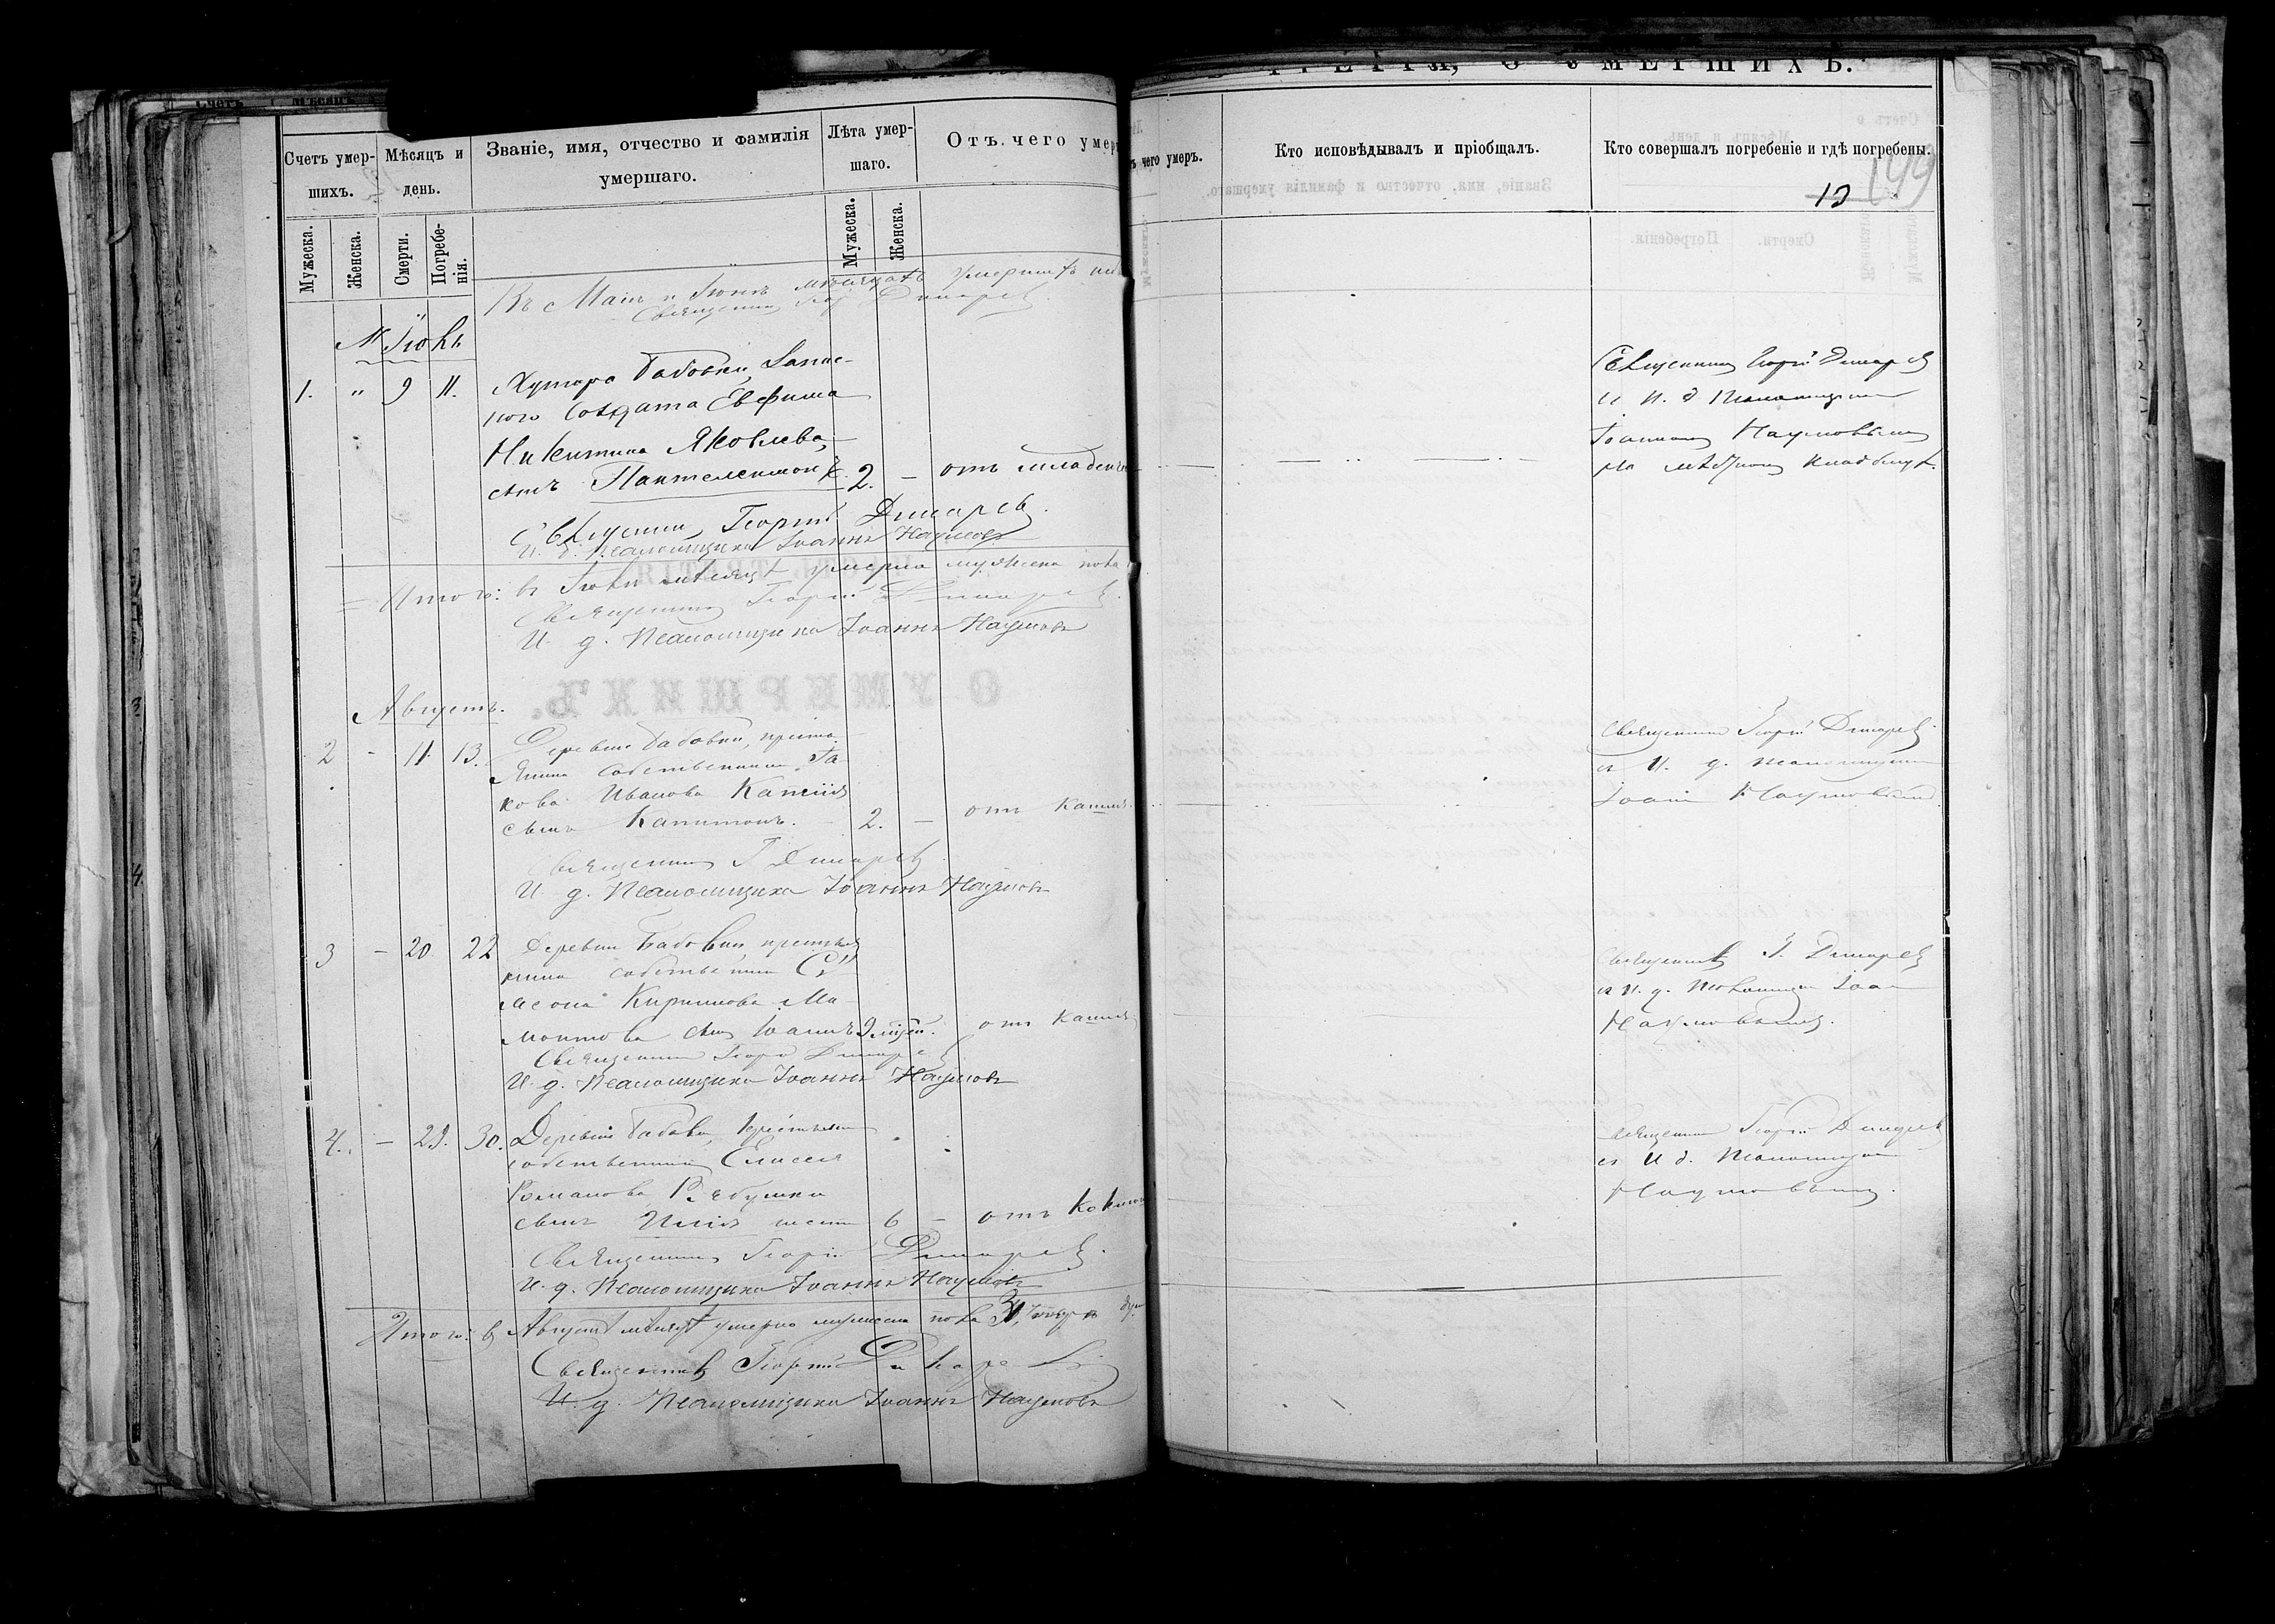 УМЕРШИХЪ.
Счетъ умер-
шихъ.
Мѣсяцъ и
день.
Званіе, имя, отчество и фамилія
умершаго.
Лѣта умер-
шаго.
Отъ чего умер
Мужеска.
Женска.
Смерти.
Погребе-
нія.
Мужеска.
Женска.
ъ чего умеръ.
Кто исповѣдывалъ и пріобщалъ.
Кто совершалъ погребеніе и гдѣ погребены.
199
Въ Маѣ и Іюнѣ мѣсяцахъ умершихъ
Священникъ Димарев
М. Іюль
1. " 9 11. Хутора Бабовки, Запас-
ного Солдата Евфима
Никитина Яковлева,
сынъ Пантелеимонъ 2. — отъ младенч
Священникъ Георгій Димарев
И. д. Псаломщика Іоаннъ Наумовъ
Итого: въ Іюлѣ мѣсяцѣ умерло мужеска пола
Священникъ Георгій Димарев
И. д. Псаломщика Іоаннъ Наумовъ
Священникъ Георгій Димарев
и И. д. Псаломщика
Іоанномъ Наумовымъ
на кладбищѣ
Августъ.
2 - 11 13. Деревни Бабовки, кресть
янина собственника Іа
кова Иванова
сынъ Капитонъ. 2. — отъ Кашля
Священникъ Г Димарев
И. д. Псаломщика Іоаннъ Наумовъ
Священникъ Георгій Димарев
и И. д. Псаломщика
Іоанн Наумовымъ
3 - 20 22 Деревни Бабовки, крестья
нина собственника Си
меона Кириллова Ма-
монтова сынъ Іоаннъ 9 отъ Кашля
Священникъ Георг Димарев
И. д. Псаломщика Іоаннъ Наумовъ
Священникъ Г. Димарев
и И. д. Псаломщика Іоан
Наумовымъ.
4. - 29. 30. Деревни Бабовки, крестьянина
собственника Елисея
Романова Рябушки
сынъ Илія 6 — отъ
Священникъ Георгій Димарев.
И. д. Псаломщика Іоаннъ Наумовъ
Священникъ Георгій Димарев
и И д. Псаломщика
Наумовымъ.
Итого: въ Августѣ мѣсяцѣ умерло мужеска пола
Священникъ Георгій Димарев
И. д. Псаломщика Іоаннъ Наумовъ